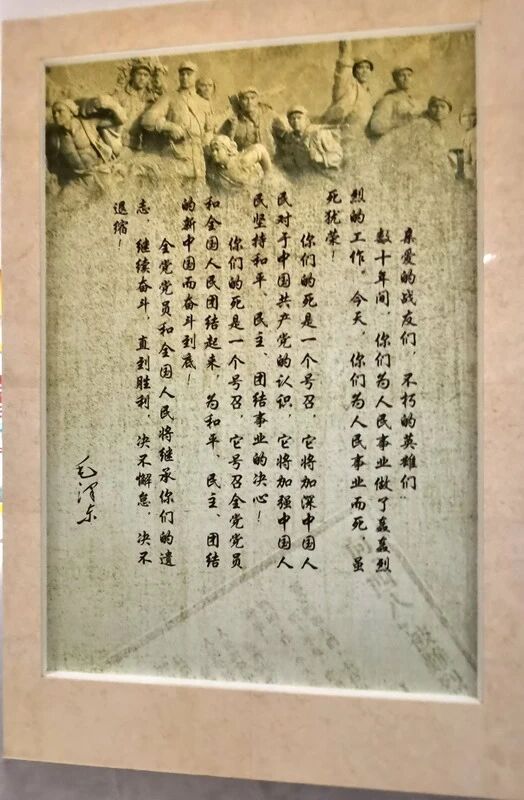 亲爱的战友们，不朽的英雄们：
数十年间，你们为人民事业做了轰轰烈
烈的工作。今天，你们为人民事业而死，虽
死犹荣！
你们的死是一个号召，它将加深中国人
民对于中国共产党的认识，它将加强中国人
民坚持和平、民主、团结事业的决心！
你们的死是一个号召，它号召全党党员
和全国人民团结起来，为和平、民主、团结
的新中国而奋斗到底！
全党党员和全国人民将继承你们的遗
志，继续奋斗，直到胜利，决不懈怠，决不
退缩！
毛泽东